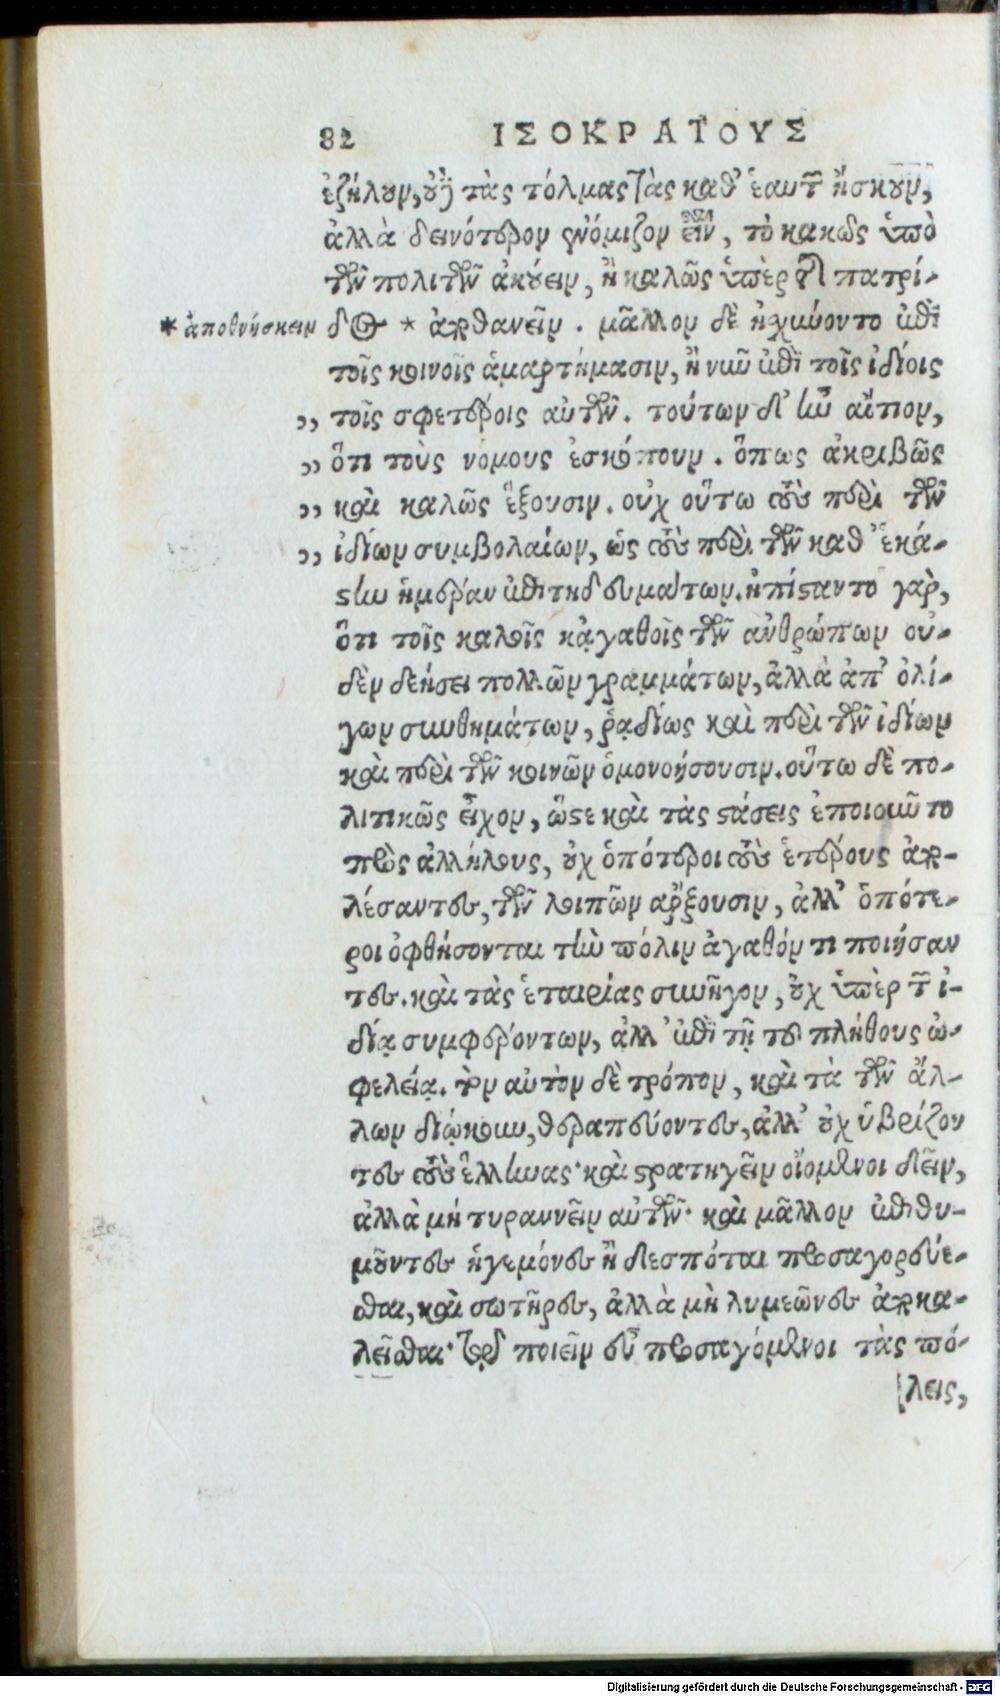 82 ΙΣΟΚΡΑΤΟΥΣ
ἐζήλουν, οὐδὲ τὰς τόλμας τὰς καθ' ἑαυτῶν ἤσκουν,
ἀλλὰ δεινότερον ἐνόμιζον εἶναι, τὸ κακῶς ὑπὸ
τῶν πολιτῶν ἀκούειν, ἢ καλῶς ὑπὲρ τῆς πατρί-
* ἀποθνήσκειν
δος * ἀποθανεῖν. μᾶλλον δὲ ᾐσχύνοντο ἐπὶ
τοῖς κοινοῖς ἁμαρτήμασιν, ἢ νῦν ἐπὶ τοῖς ἰδίοις
,, τοῖς σφετέροις αὐτῶν. τούτων δ' ἦν αἴτιον,
,, ὅτι τοὺς νόμους ἐσκόπουν. ὅπως ἀκριβῶς
,, καὶ καλῶς ἕξουσιν. οὐχ οὕτω τοὺς περὶ τῶν
,, ἰδίων συμβολαίων, ὡς τοὺς περὶ τῶν καθ' ἑκά-
στην ἡμέραν ἐπιτηδευμάτων. ἠπίσταντο γὰρ,
ὅτι τοῖς καλοῖς κᾀγαθοῖς τῶν ἀνθρώπων οὐ-
δὲν δεήσει πολλῶν γραμμάτων, ἀλλὰ ἀπ' ὀλί-
γων συνθημάτων, ῥᾳδίως καὶ περὶ τῶν ἰδίων
καὶ περὶ τῶν κοινῶν ὁμονοήσουσιν. οὕτω δὲ πο-
λιτικῶς εἶχον, ὥστε καὶ τὰς στάσεις ἐποιοῦντο
πρὸς ἀλλήλους, οὐχ ὁπότεροι τοὺς ἑτέρους ἀπο-
λέσαντες, τῶν λοιπῶν ἄρξουσιν, ἀλλ' ὁπότε-
ροι ὀφθήσονται τὴν πόλιν ἀγαθόν τι ποιήσαν
τες. καὶ τὰς ἑταιρίας συνῆγον, οὐχ ὑπὲρ τῶν ἰ-
δίᾳ συμφερόντων, ἀλλ' ἐπὶ τῇ τοῦ πλήθους ὠ-
φελείᾳ. τὸν αὐτὸν δὲ τρόπον, καὶ τὰ τῶν ἄλ-
λων διῴκουν, θεραπεύοντες, ἀλλ' οὐχ ὑβρίζον
τες τοὺς ἕλληνας· καὶ στρατηγεῖν οἰόμενοι δεῖν,
ἀλλὰ μὴ τυραννεῖν αὐτῶν· καὶ μᾶλλον ἐπιθυ-
μοῦντες ἡγεμόνες ἢ δεσπόται προσαγορεύε-
σθαι, καὶ σωτῆρες, ἀλλὰ μὴ λυμεῶνες ἀποκα-
λεῖσθαι· τῷ ποιεῖν εὖ προσαγόμενοι τὰς πό-
[λεις,
Digitalisierung gefördert durch die Deutsche Forschungsgemeinschaft - DFG